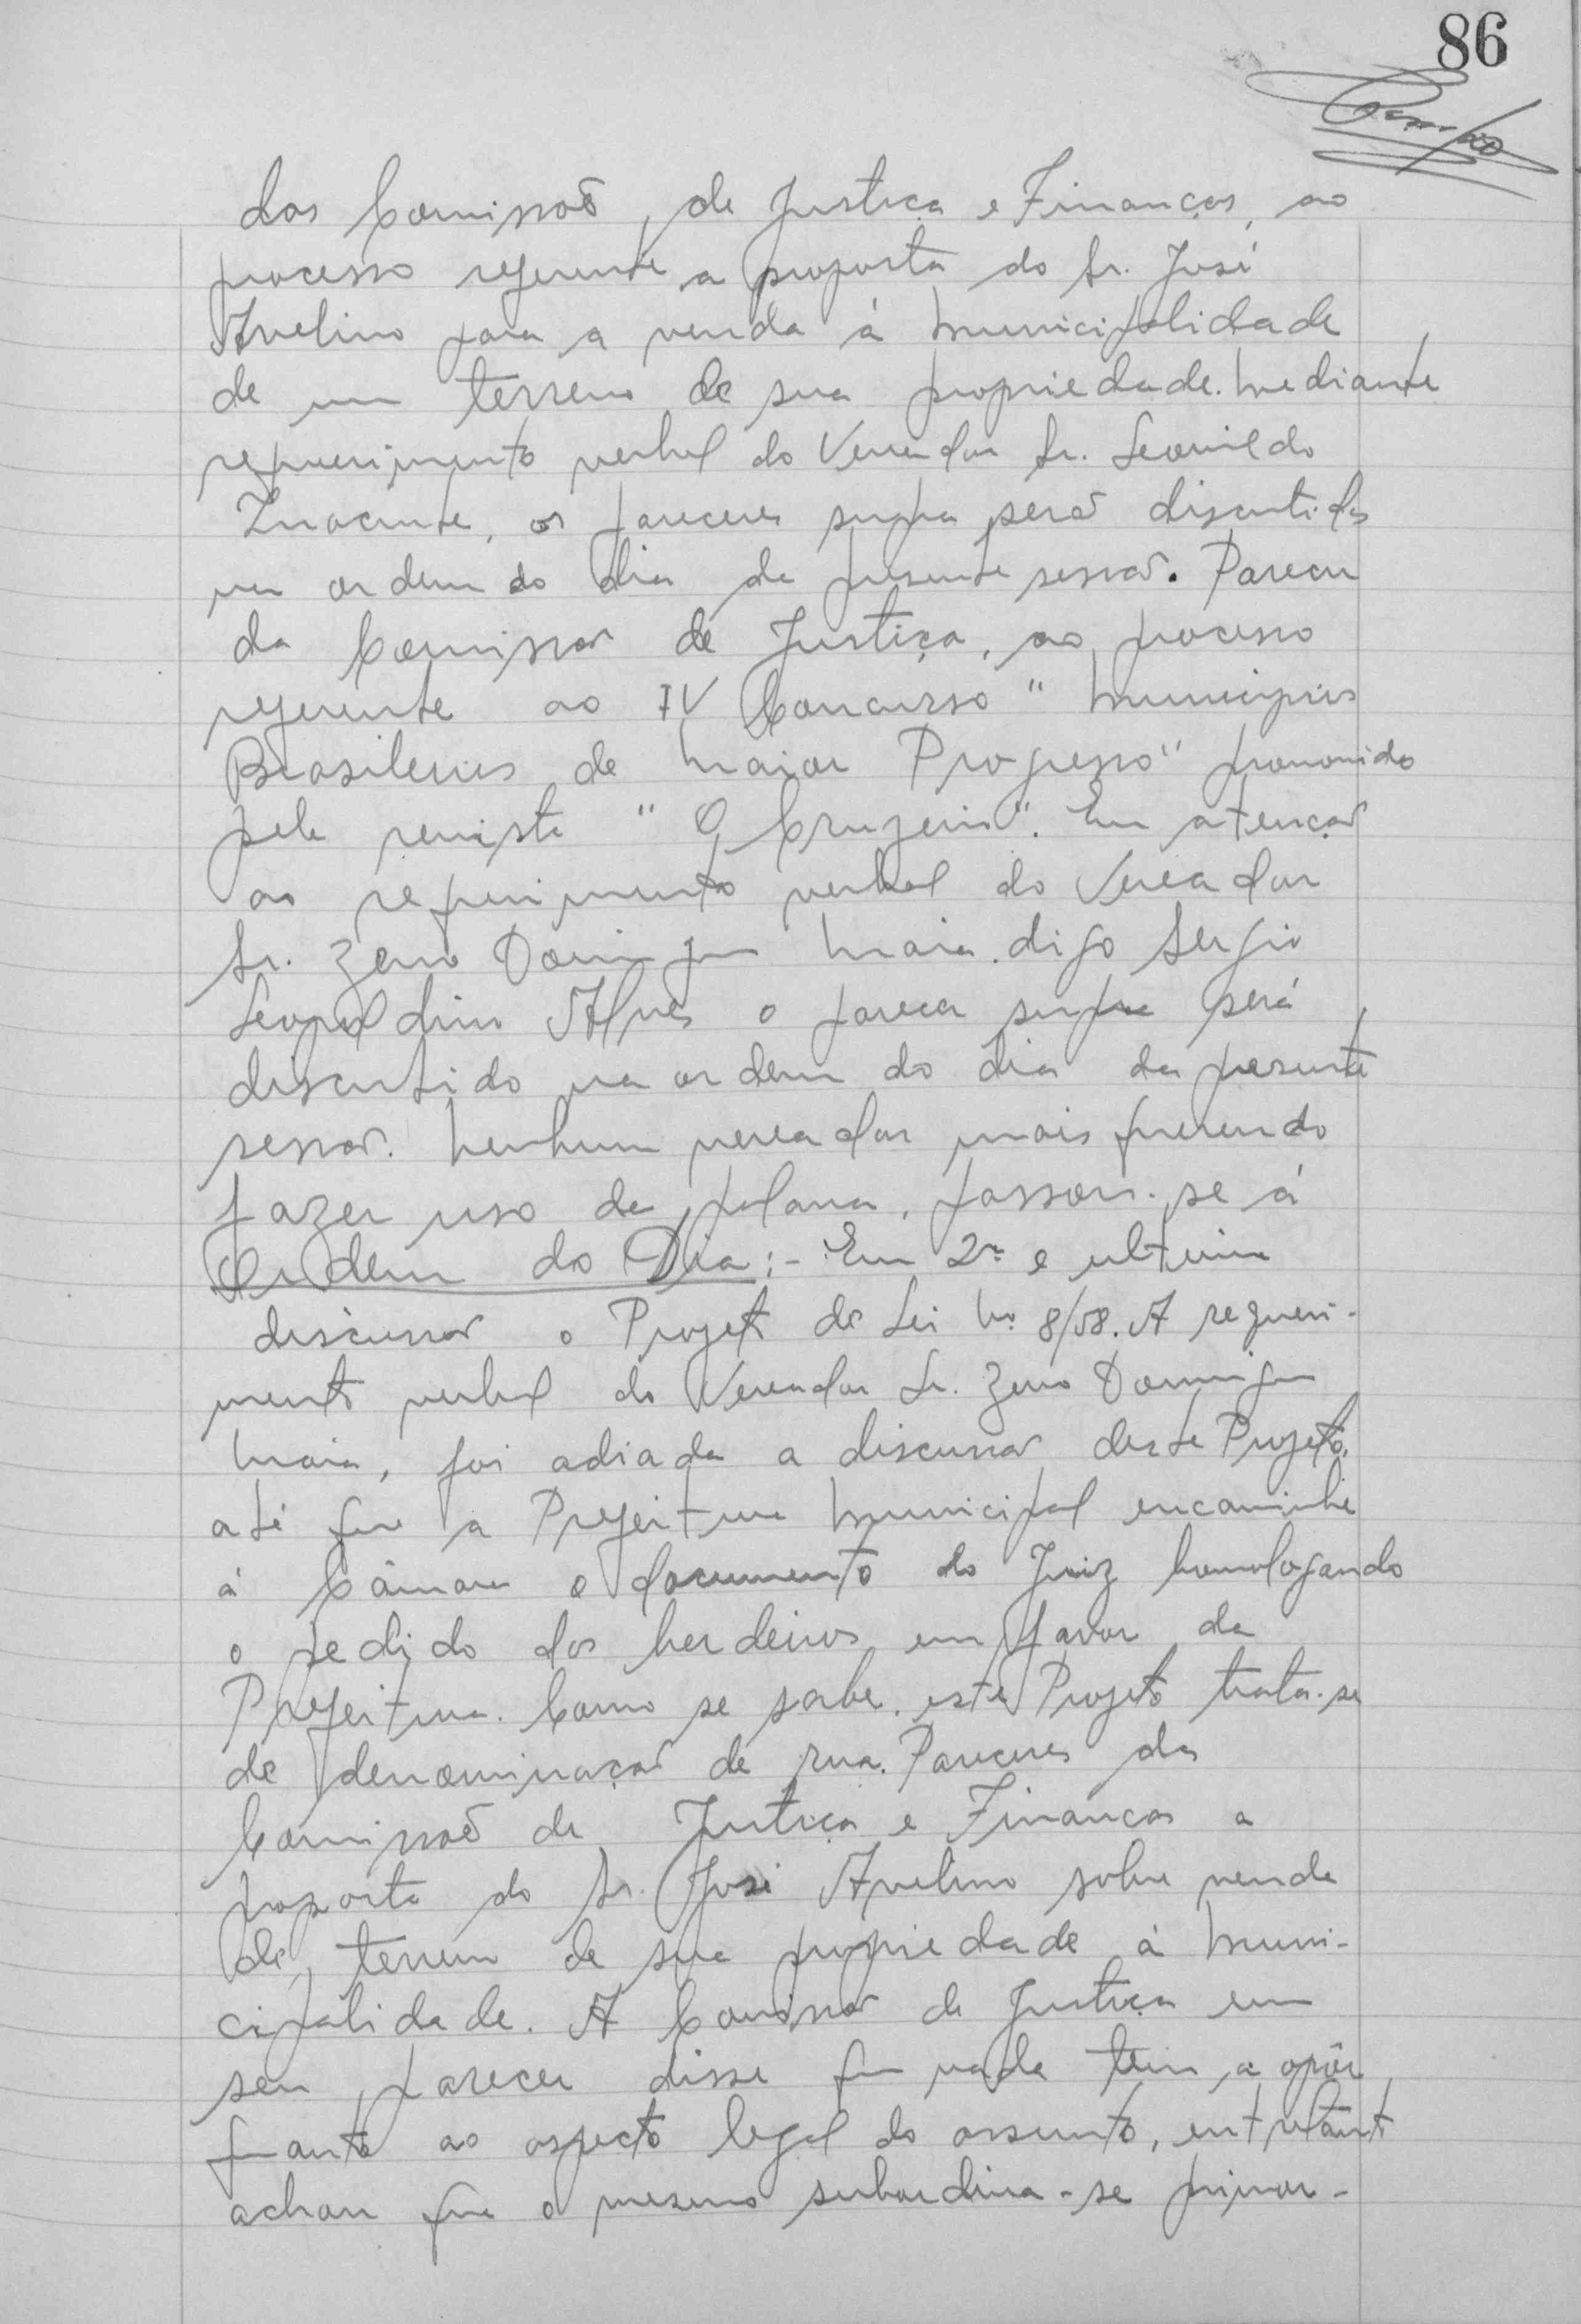 86
das Comissoẽ, de Justiça e Finanças, ao
processo referente a proposta do Sr. José
Avelino para a venda á Municipalidade
de um terreno de sua propriedade. Mediante
requerimento verbal do Vereador Sr. Leonildo
Inocente, os pareceres supra será discutidos
na ordem do dia da presente sessão. Parecer
da Comissão de Justiça, ao processo
referente ao IV Concurso "Municipios
Brasileiros de Maior Progresso" promovido
pela revista "O Cruzeiro". Em atenção
ao requerimento verbal do Vereador
Sr. Zeno Domingues Maia. digo Sergio
Leopoldino Alves o parecer supra será
discutido na ordem do dia da presente
sessão. Nenhum vereador mais querendo
fazer uso da palavra, passou-se á
Ordem do Dia:- Em 2ª e ultima
discussão o Projeto de Lei Nº 8/58. A requeri-
mento verbal do Vereador Sr. Zeno Domingues
Maia, foi adiada a discussão deste Projeto,
até que a Prefeitura Municipal encaminhe
á Câmara o documento do Juiz homologando
o pedido dos herdeiros em favor da
Prefeitura. Como se sabe, este Projeto trata-se
de denominação de rua. Pareceres das
Comissoẽ de Justiça e Finanças a
proposta do Sr. José Avelino sobre venda
de terreno de sua propriedade á Muni-
cipalidade. A Comissão de Justiça em
seu parecer disse que nada tem a opôr
quanto ao aspecto legal do assunto, entretânto
achou que o mesmo subordina-se primor-